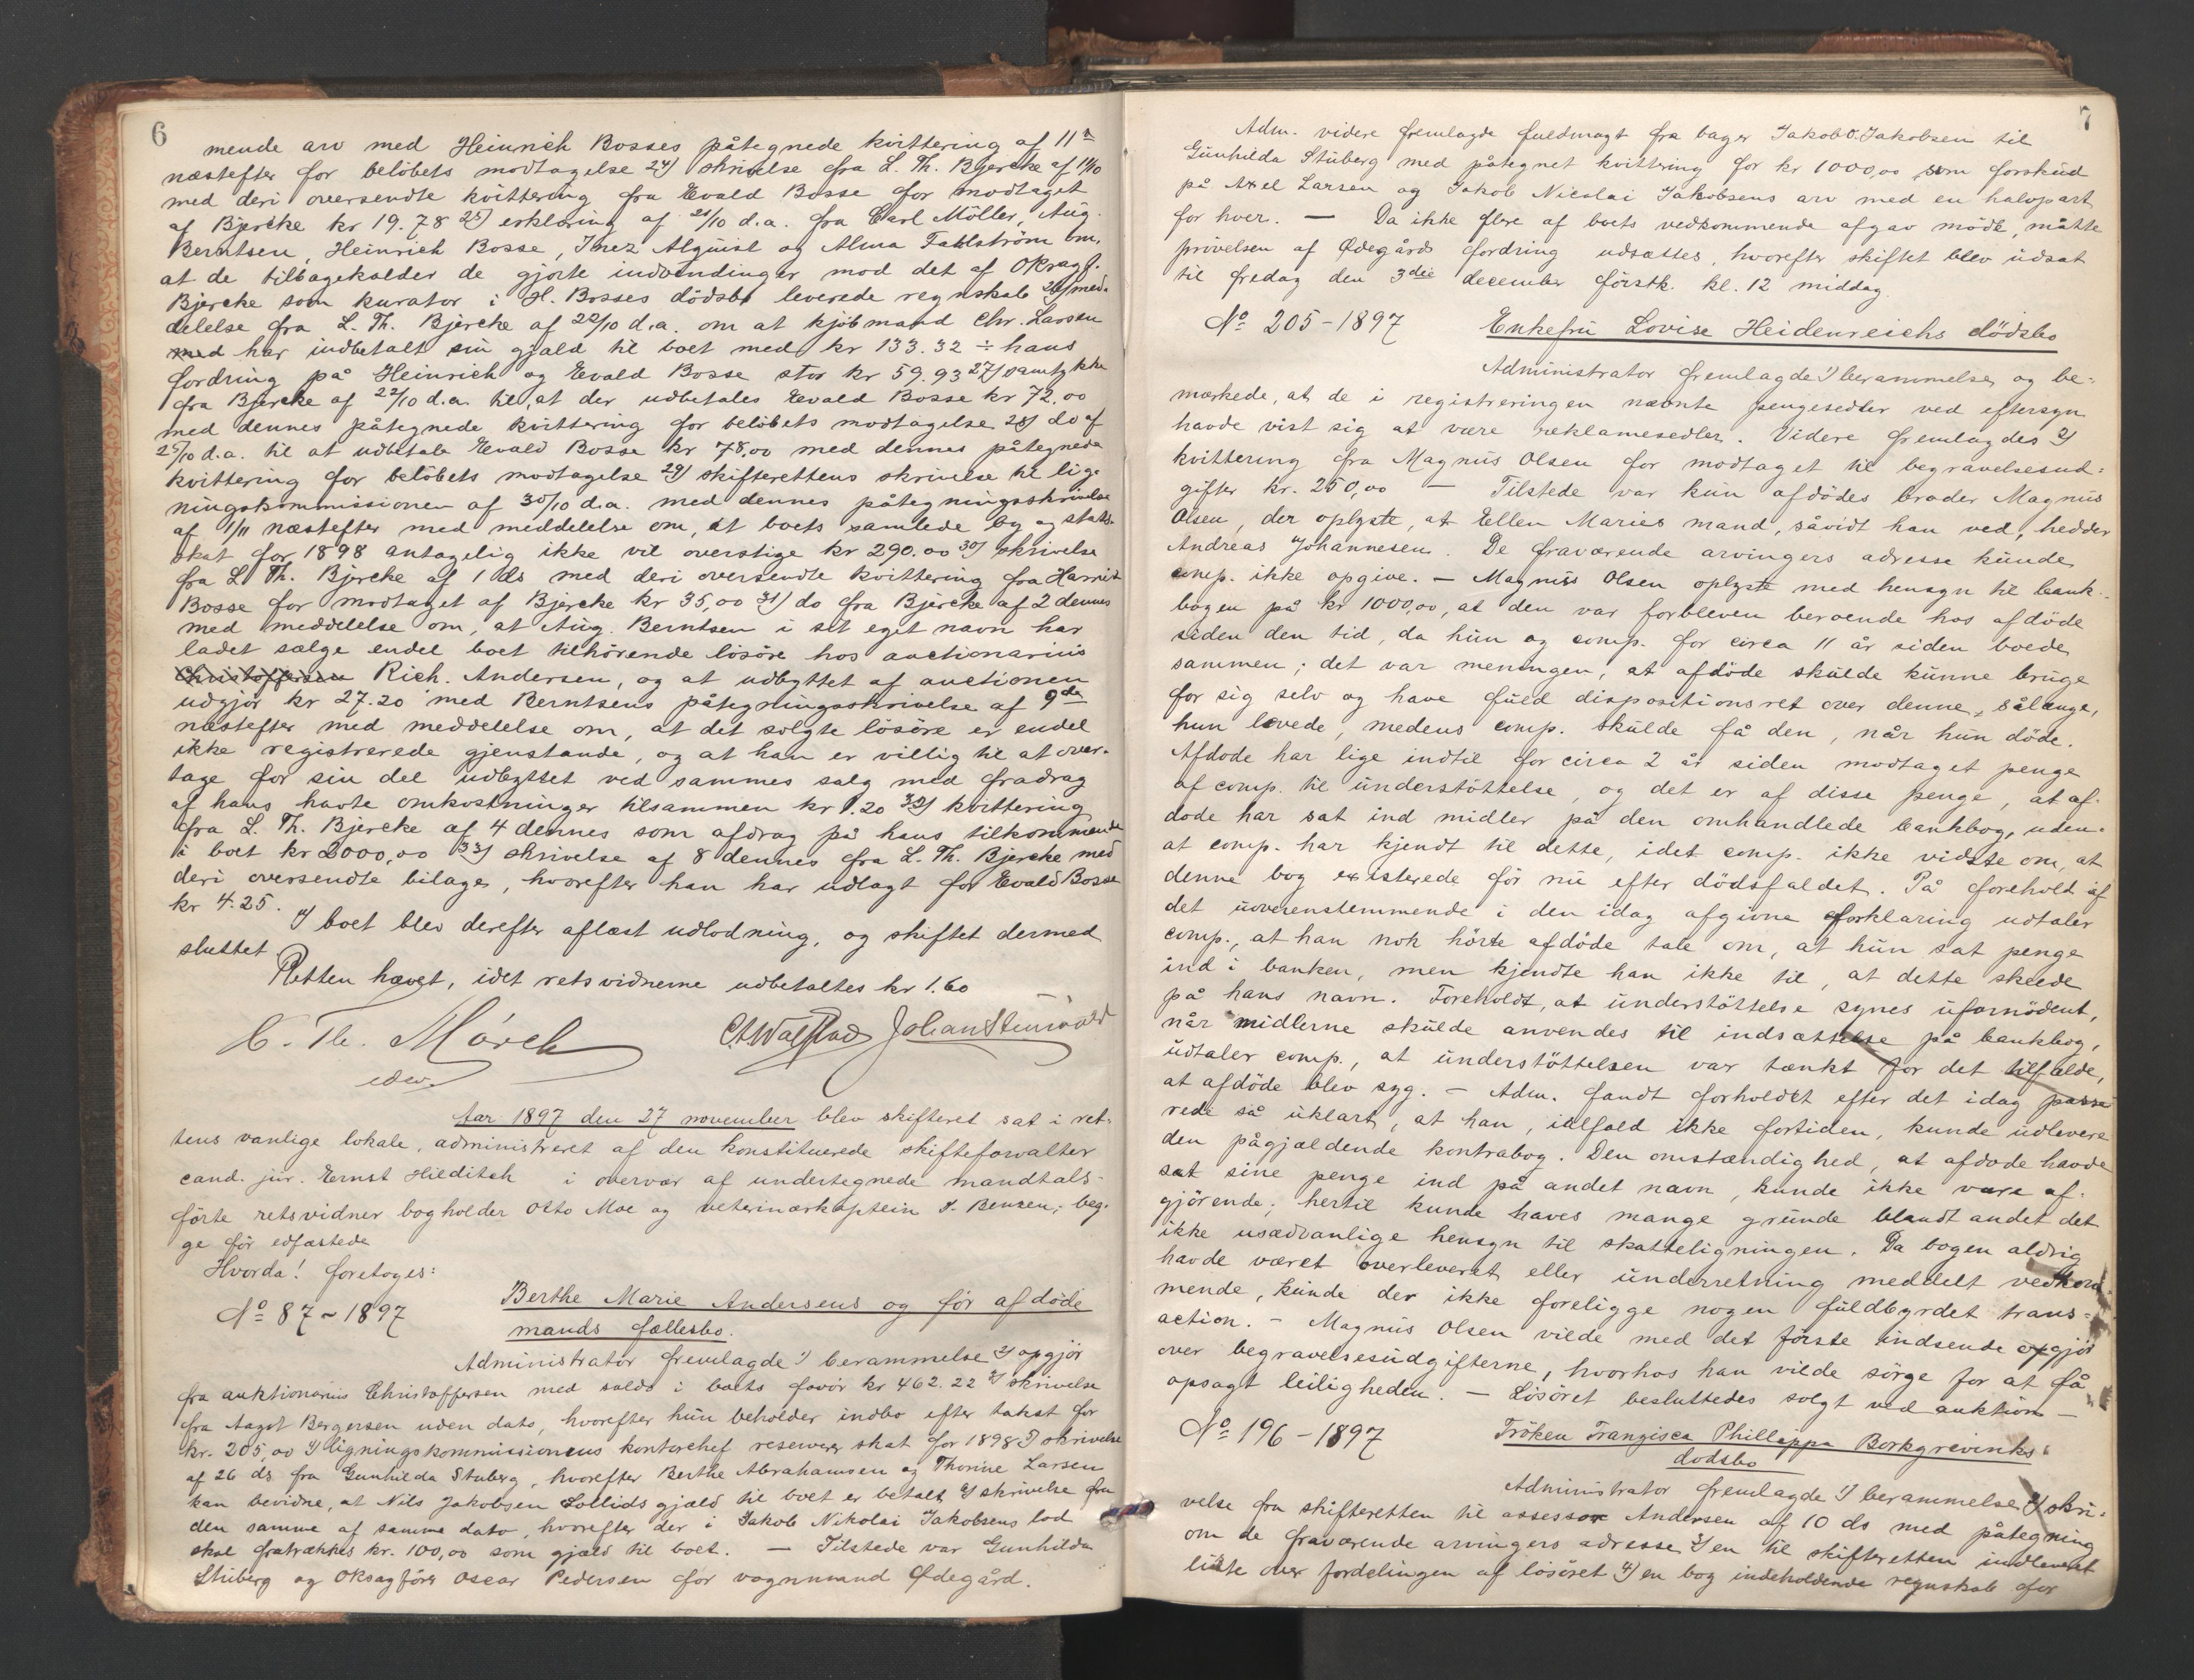 6
mende arv med Heinrich Bosses påtegnede kvittering af 11te
næstefter for belöbets modtagelse 24) skrivelse fra L. Th. Bjercke af 14/10
med deri oversendte kvittering fra Evald Bosse for modtaget
af Bjercke kr 19.78 25) erklæring af 21/10 d.a. fra Carl Möller, Aug.
Berntsen, Heinrich Bosse, Inez Alquist og Alma Fahlström om,
at de tilbagekalder de gjorte indvendinger mod det af Oksagf.
Bjercke som kurator i H. Bosses dödsbo leverede regnskab 26) med-
delelse fra L. Th. Bjercke af 22/10 d.a. om at kjöbmand Chr. Larsen
med har indbetalt sin gjæld til boet med kr 133.32 ÷ hans
fordring på Heinrich og Evald Bosse stor kr 59.93 27) samtykke
fra Bjercke af 22/10 d.a. til, at der udbetales Evald Bosse kr 72.00
med dennes påtegnede kvittering for belöbets modtagelse 28) do af
25/10 d.a. til at udbetale Evald Bosse kr 78,00 med dennes påtegnede
kvittering for belöbets modtagelse 29) skifterettens skrivelse til lig-
ningskommissionen af 30/10 d.a. med dennes påtegningsskrivelse
af 1/11 næstefter med meddelelse om, at boets samlede by og stats-
skat for 1898 antagelig ikke vil overstige kr 290.00 30) skrivelse
fra L. Th. Bjercke af 1 ds med deri oversendte kvittering fra Harriet
Bosse for modtaget af Bjercke kr 35,00 31) do fra Bjercke af 2 dennes
med meddelelse om, at Aug. Berntsen i sit eget navn har
ladet sælge endel boet tilhörende lösöre hos auctionarius
Christoffersen Rich. Andersen, og at udbyttet af auctionen
udgjör kr 27.20 med Berntsens påtegningsskrivelse af 9de
næstefter med meddelelse om, at det solgte lösöre er endel
ikke registrerede gjenstande, og at han er villig til at over-
tage for sin del udbyttet ved sammes salg med fradrag
af hans havte omkostninger tilsammen kr 1.20 32) kvittering
fra L. Th. Bjercke af 4 dennes som afdrag på hans tilkommende
i boet kr 2000,00 33) skrivelse af 8 dennes fra L. Th. Bjercke med
deri oversendte bilage, hvorefter han har udlagt for Evald Bosse
kr 4.25.
I boet blev derefter aflæst udlodning, og skiftet dermed
sluttet.
Retten hævet, idet retsvidnerne udbetaltes kr 1.60
C. Th. Mörch
edw.
Aar 1897 den 27 november blev skifteret sat i ret-
tens vanlige lokale, administreret af den konstituerede skifteforvalter
cand. jur. Ernst Hilditch i overvær af undertegnede mandtals-
förte retsvidner bogholder Otto Moe og veterinærkaptein J. Bentzen, beg-
ge för edfæstede
Hvorda! foretoges:
No 87 - 1897
Berthe Marie Andersens og för afdöde
mands fællesbo.
Administrator fremlagde 1) berammelse 2) opgjör
fra auktionarius Christoffersen med saldo i boets favör kr 462.22 3) skrivelse
fra Aagot Bergersen uden dato, hvorefter hun beholder indbo efter takst for
kr. 205,00 4) ligningskommissionens kontorchef reserverer skat for 1898 5) skrivelse
af 26 ds fra Gunhilda Stuberg, hvorefter Berthe Abrahamsen og Thorine Larsen
kan bevidne, at Nils Jakobsen Sollids gjæld til boet er betalt 6) skrivelse fra
den samme af samme dato, hvorefter der i Jakob Nikolai Jakobsens lod
skal fratrækkes kr. 100,00 som gjæld til boet. — Tilstede var Gunhilda
Stuberg og Oksagförer Oscar Pedersen for vognmand Ödegård.
7
Adm. videre fremlagde fuldmagt fra bager Jakob O. Jakobsen til
Gunhilda Stuberg med påtegnet kvittering for kr 1000,00 som forskud
på Axel Larsen og Jakob Nicolai Jakobsens arv med en halvpart
for hver. — Da ikke flere af boets vedkommende afgav möde, måtte
prövelsen af Ødegårds fordring udsættes, hvorefter skiftet blev udsat
til fredag den 3die december förstk. kl. 12 middag.
No 205 - 1897
Enkefru Lovise Heidenreichs dödsbo
Administrator fremlagde 1) berammelse, og be-
mærkede, at de i registreringen nævnte pengesedler ved eftersyn
havde vist sig at være reklamesedler. Videre fremlagdes 2)
kvittering fra Magnus Olsen for modtaget til begravelsesud-
gifter kr. 250,00 — Tilstede var kun afdödes broder Magnus
Olsen, der oplyste, at Ellen Maries mand, såvidt han ved, hedder
Andreas Johannesen. De fraværende arvingers adresse kunde
comp. ikke opgive. — Magnus Olsen oplyste med hensyn til bank-
bogen på kr 1000,00, at den var forbleven beroende hos afdöde
siden den tid, da hun og comp. for circa 11 år siden boede
sammen; det var meningen, at afdöde skulde kunne bruge
for sig selv og have fuld dispositionsret over denne, sålænge,
hun levede, medens comp. skulde få den, når hun döde.
Afdöde har lige indtil for circa 2 år siden modtaget penge
af comp. til understöttelse, og det er af disse penge, at af-
döde har sat ind midler på den omhandlede bankbog, uden-
at comp. har kjendt til dette, idet comp. ikke vidste om, at
denne bog existerede för nu efter dödsfaldet. På forehold af
det uoverenstemmende i den idag afgivne forklaring udtaler
comp., at han nok hörte afdöde tale om, at hun sat penge
ind i banken, men kjendte han ikke til, at dette skeede
på hans navn. Foreholdt, at understöttelse synes ufornödent,
når midlerne skulde anvendes til indsættelse på bankbog,
udtaler comp., at understöttelsen var tænkt for det tilfælde,
at afdöde blev syg. — Adm. fandt forholdet efter det idag passe-
rede så uklart, at han, ialfald ikke fortiden, kunde udlevere
den pågjældende kontrabog. Den omstændighed, at afdöde havde
sat sine penge ind på andet navn, kunde ikke være af-
gjörende; hertil kunde haves mange grunde blandt andet det
ikke usædvanlige hensyn til skatteligningen. Da bogen aldrig
havde været overleveret eller underretning meddelt vedkom-
mende, kunde der ikke foreligge nogen fuldbyrdet trans-
action. — Magnus Olsen vilde med det förste indsende opgjör
over begravelsesudgifterne, hvorhos han vilde sörge for at få
opsagt leiligheden. — Lösöret besluttedes solgt ved auktion —
No 196 - 1897
Fröken Frangisca Phillippa Borkgrevinks
dödsbo
Administrator fremlagde 1) berammelse 2) skri-
velse fra skifteretten til assessor Andersen af 10 ds med påtegning
om de fraværende arvingers adresse 3) en til skifteretten indleveret
liste over fordelingen af lösöret 4) en bog indeholdende regnskab for